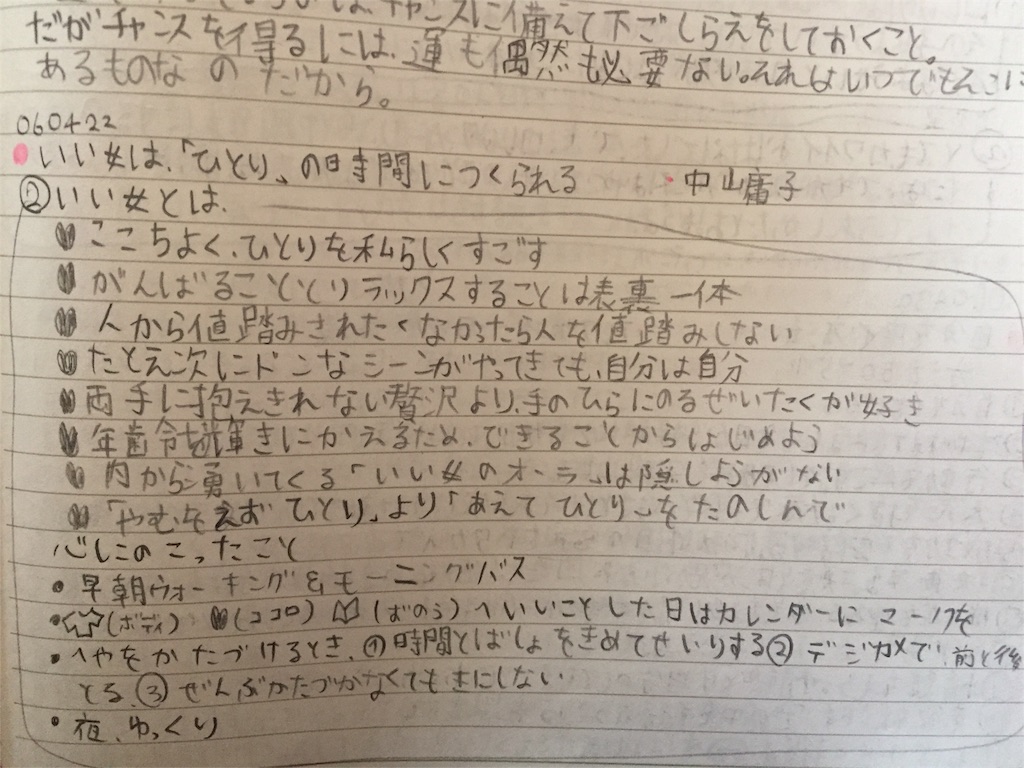 チャンスに備えて下ごしらえをしておくこと。
だがチャンスを得るには、運も偶然も必要ない。それはいつでもそこに
あるものなのだから。
060422
いい女は、「ひとり」の時間につくられる ・中山庸子
②いい女とは、
ここちよく、ひとりを私らしくすごす
がんばることとリラックスすることは表裏一体
人から値踏みされたくなかったら人を値踏みしない
たとえ次にドンなシーンがやってきても、自分は自分
両手に抱えきれない贅沢より、手のひらにのるぜいたくが好き
年齢を輝きにかえるため、できることからはじめよう
内から湧いてくる「いい女のオーラ」は隠しようがない
「やむをえずひとり」より「あえてひとり」をたのしんで
心にのこったこと
・早朝ウォーキング&モーニングバス
・(ボディ) (ココロ) (ずのう)へいいことした日はカレンダーにマークを
・へやをかたづけるとき、①時間とばしょをきめてせいりする②デジカメで前と後
とる③ぜんぶかたづかなくてもきにしない
・夜、ゆっくり